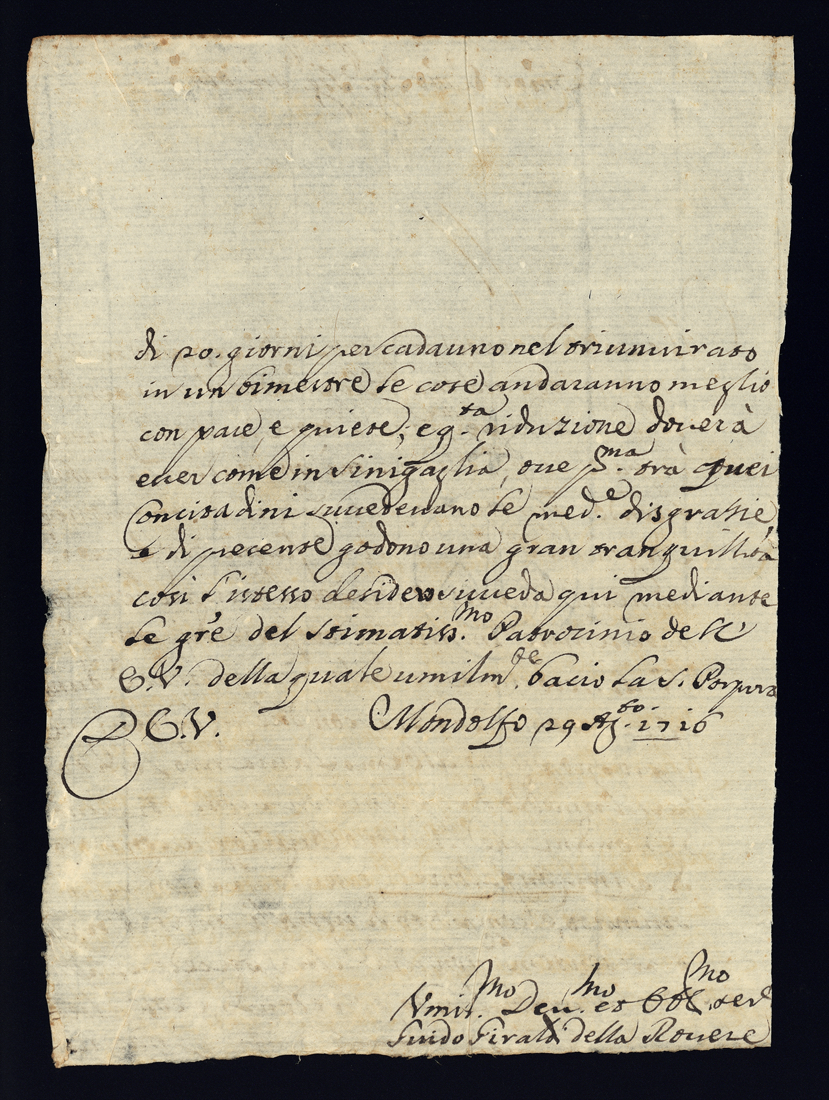 di 20. giorni per cadauno nel triumvirato
in un bimestre le cose andaranno meglio
con pace, e quiete; e q.ta riduzione doverà
esser come in Sinigaglia, ove p.ma trà quei
Concitadini succedevano le med.e disgratie,
e di presente godono una gran tranquillità
così l'istesso desidero succeda qui mediante
le gr.e del stimatiss.mo Patrocinio dell'
E.V. della quale umilm.te bacio la S. Porpora
E.V. Mondolfo 29 Ag.to 1716
Vmil.mo Deu.mo et Obl.mo ser.
Guido Girald della Rovere